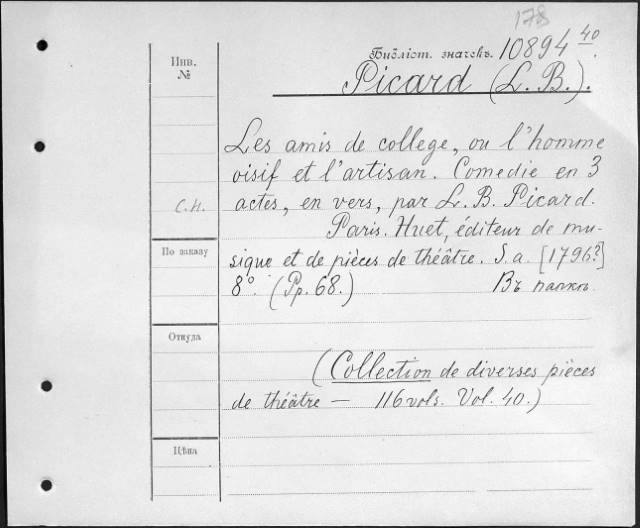 178
Инв. №
Библіот. значекъ. 10894 40.
Picard (L. B.).
Les amis de college, ou l'homme
oisif et l'artisan. Comedie en 3
С.Н. actes, en vers, par L. B. Picard.
Paris. Huet, éditeur de mu-
По заказу
sique et de pièces de théâtre. S. a. [1796?]
8°. (Pp. 68.) Въ папкѣ.
Откуда
(Collection de diverses pièces
de théâtre — 116 vols. Vol. 40.)
Цѣна